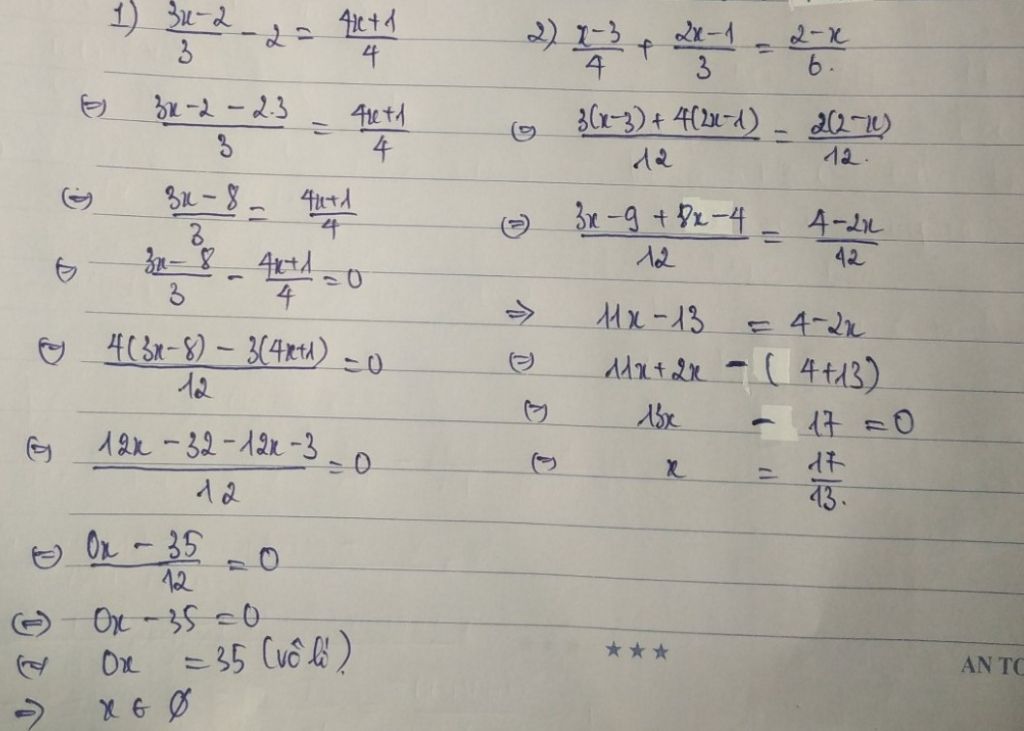 1) (3x-2)/3 - 2 = (4x+1)/4
⇔ (3x-2-2.3)/3 = (4x+1)/4
⇔ (3x-8)/3 = (4x+1)/4
⇔ (3x-8)/3 - (4x+1)/4 = 0
⇔ (4(3x-8) - 3(4x+1))/12 = 0
⇔ (12x-32-12x-3)/12 = 0
⇔ (0x-35)/12 = 0
⇔ 0x-35=0
⇔ 0x = 35 (vô lí)
⇒ x ∈ ∅
2) (x-3)/4 + (2x-1)/3 = (2-x)/6.
⇔ (3(x-3)+4(2x-1))/12 = (2(2-x))/12.
⇔ (3x-9+8x-4)/12 = (4-2x)/12
⇒ 11x-13 = 4-2x
⇔ 11x+2x - ( 4+13)
⇔ 13x - 17 = 0
⇔ x = 17/13.
★★★
AN TO